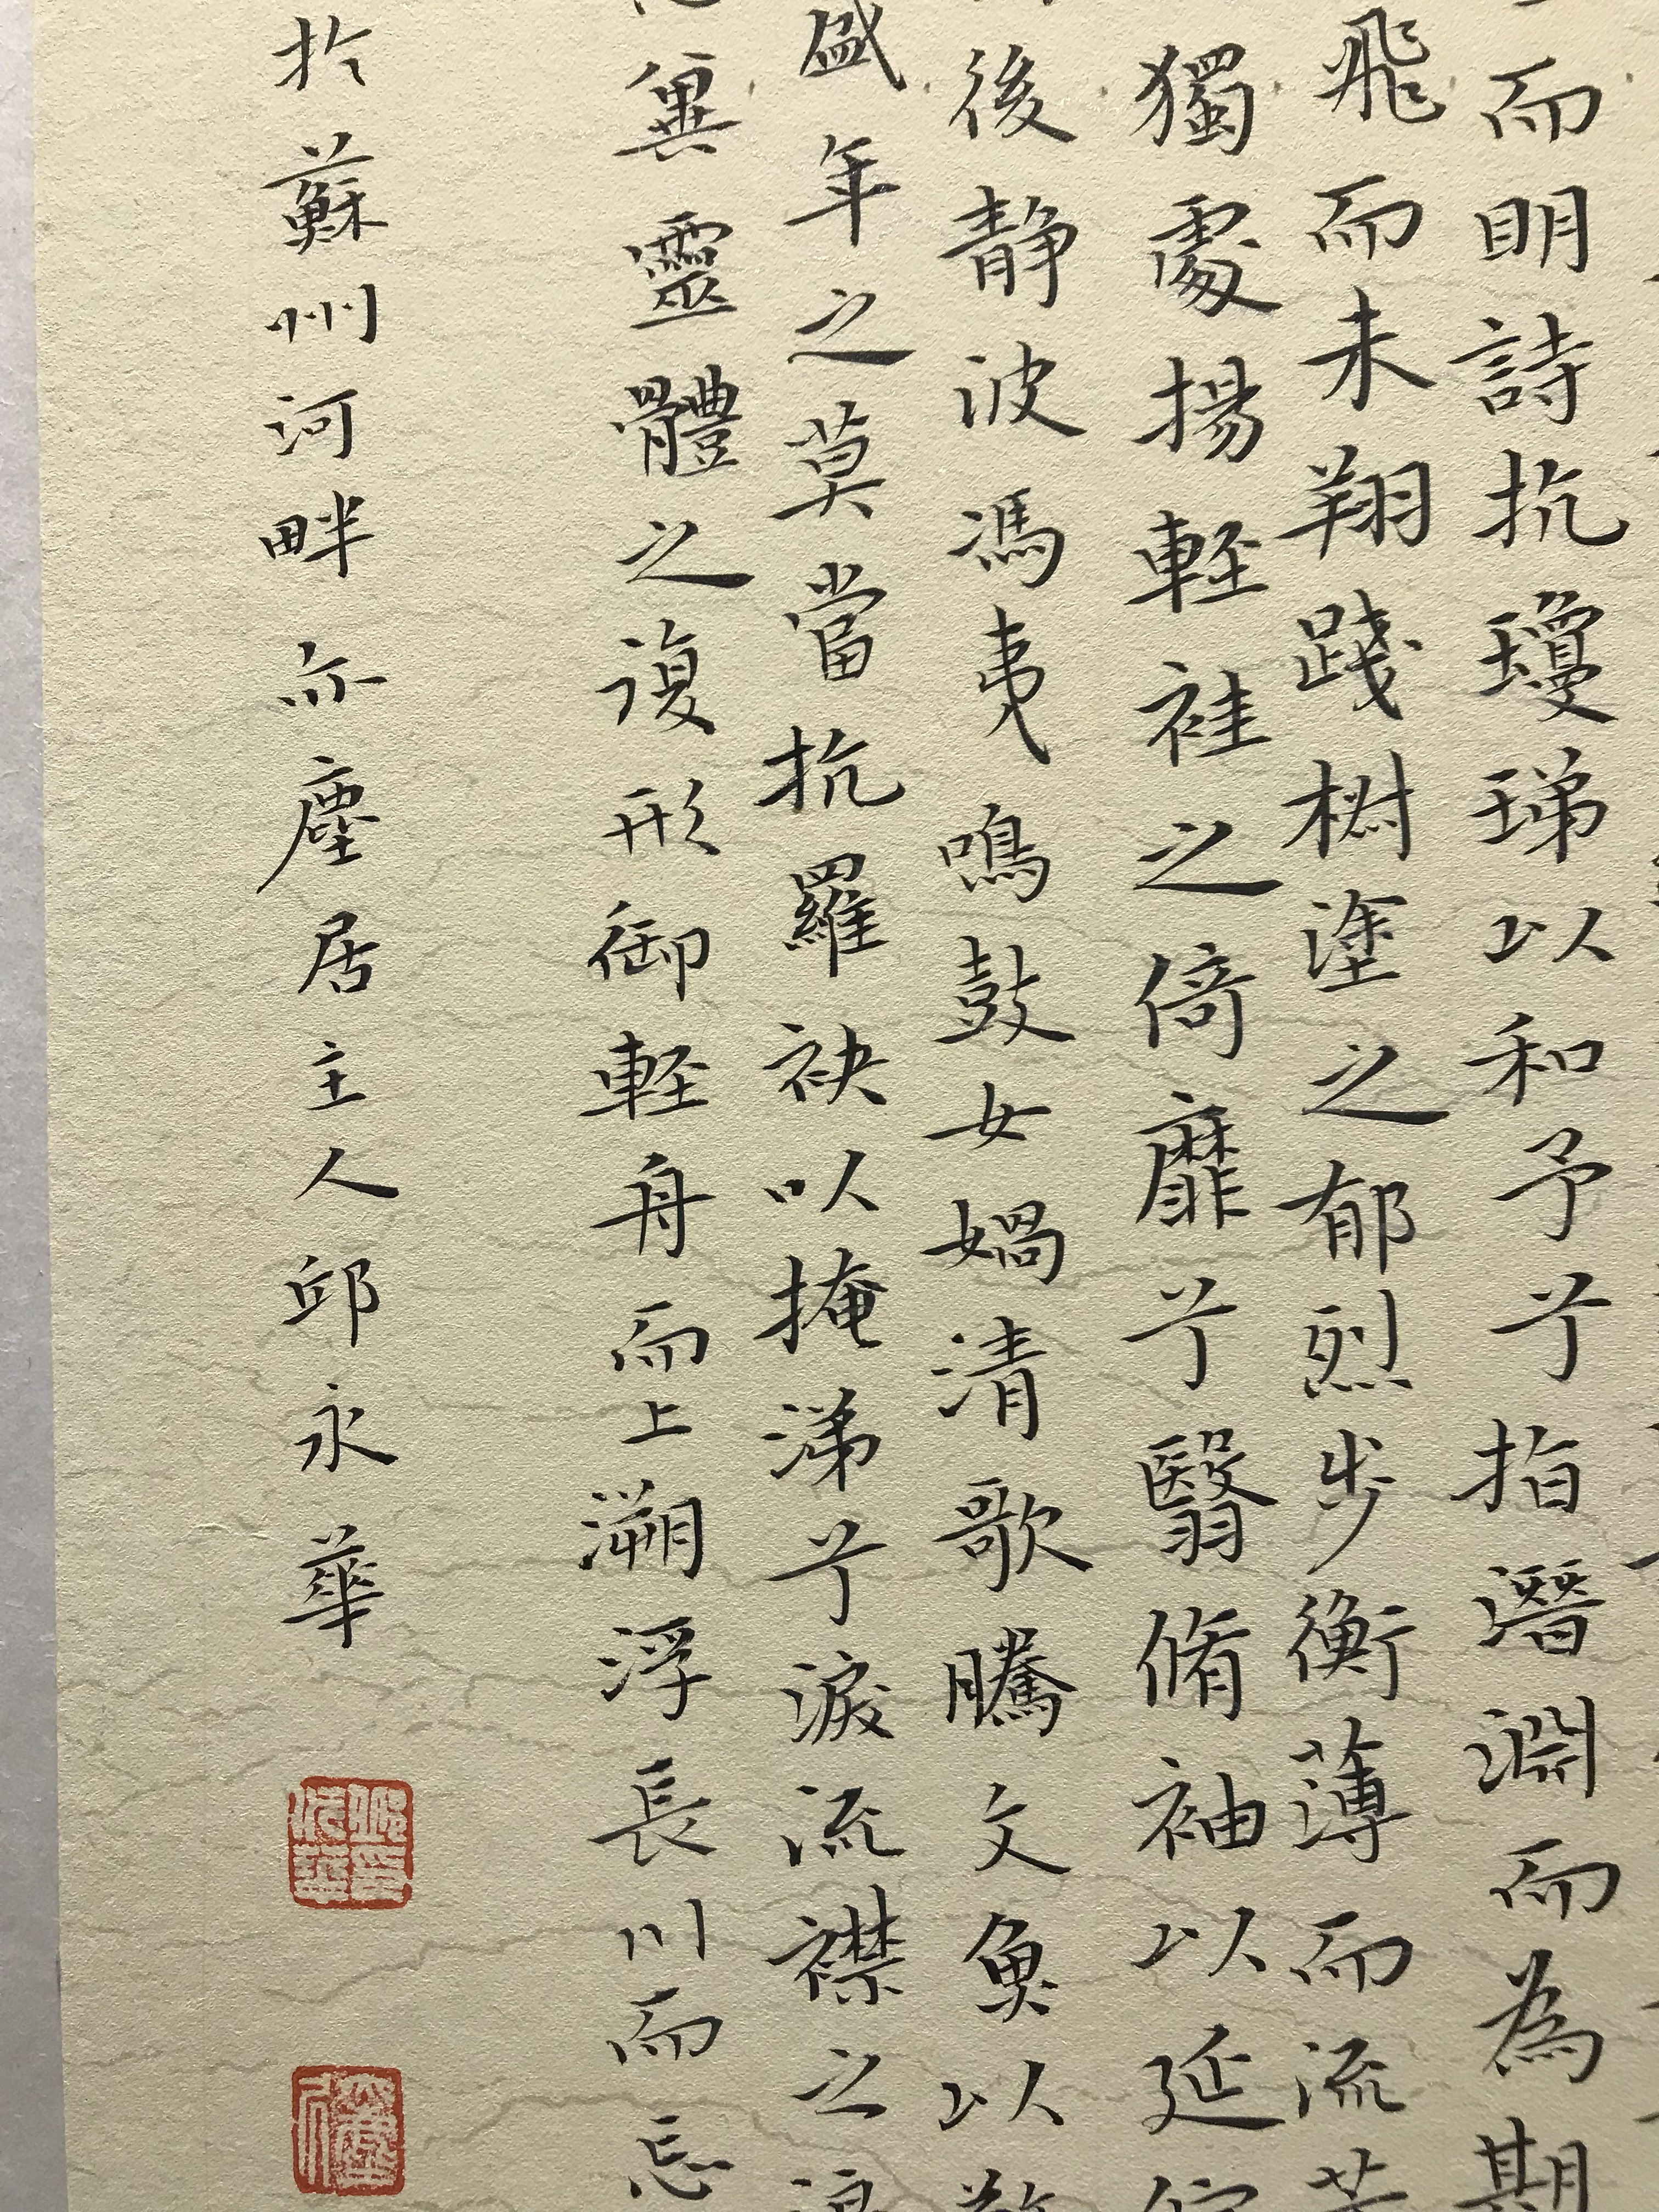 而明詩抗瓊珶以和予兮指潛淵而為期
飛而未翔踐椒塗之郁烈步衡薄而流芳
獨處揚輕袿之倚靡兮翳脩袖以延佇
後靜波馮夷鳴鼓女媧清歌騰文魚以警
盛年之莫當抗羅袂以掩涕兮淚流襟之浪
冀靈體之復形御輕舟而上溯浮長川而忘
於蘇州河畔亦塵居主人邱永華
邱永華印
亦塵